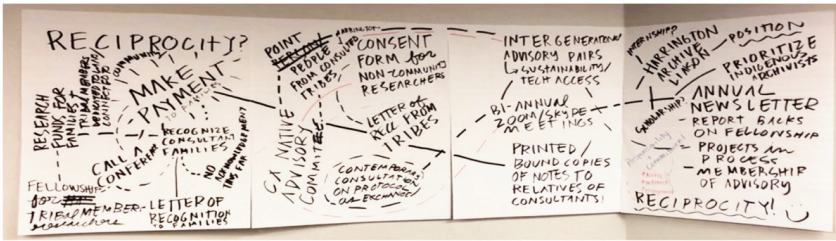 RECIPROCITY?
COMMUNITY
MAKE
PAYMENT
TO FAMILIES
RESEARCH
FUNDS FOR
FAMILIES
TRIBAL MEMBERS
CONNECTED
RECOGNIZE
CONSULTANT
FAMILIES
CALL A
CONFERENCE
NO
ACKNOWLEDGEMENT
THIS FAR
FELLOWSHIPS
for
TRIBAL MEMBER-
researchers
LETTER OF
RECOGNITION
TO FAMILIES
POINT
PEOPLE
FROM CONSULTED
TRIBES
HARRINGTON
CA NATIVE
ADVISORY
COMMITTEE
CONSENT
FORM for
NON-COMMUNITY
RESEARCHERS
LETTER OF
REC FROM
TRIBES
CONTEMPORARY
CONSULTATION
ON PROTOCOL
as EXCHANGE!
INTERGENERATION/
ADVISORY PAIRS
SUSTAINABILITY/
TECH ACCESS
BI-ANNUAL
ZOOM/SKYPE
MEETINGS
PRINTED/
BOUND COPIES
OF NOTES TO
RELATIVES OF
CONSULTANTS!
INTERNSHIP?
HARRINGTON
ARCHIVE
LIAISON
POSITION
PRIORITIZE
INDIGENOUS
ARCHIVISTS
SCHOLARSHIP?
ANNUAL
NEWSLETTER
- REPORT BACKS
ON FELLOWSHIP
- PROJECTS in
PROCESS
- MEMBERSHIP
OF ADVISORY
RECIPROCITY!